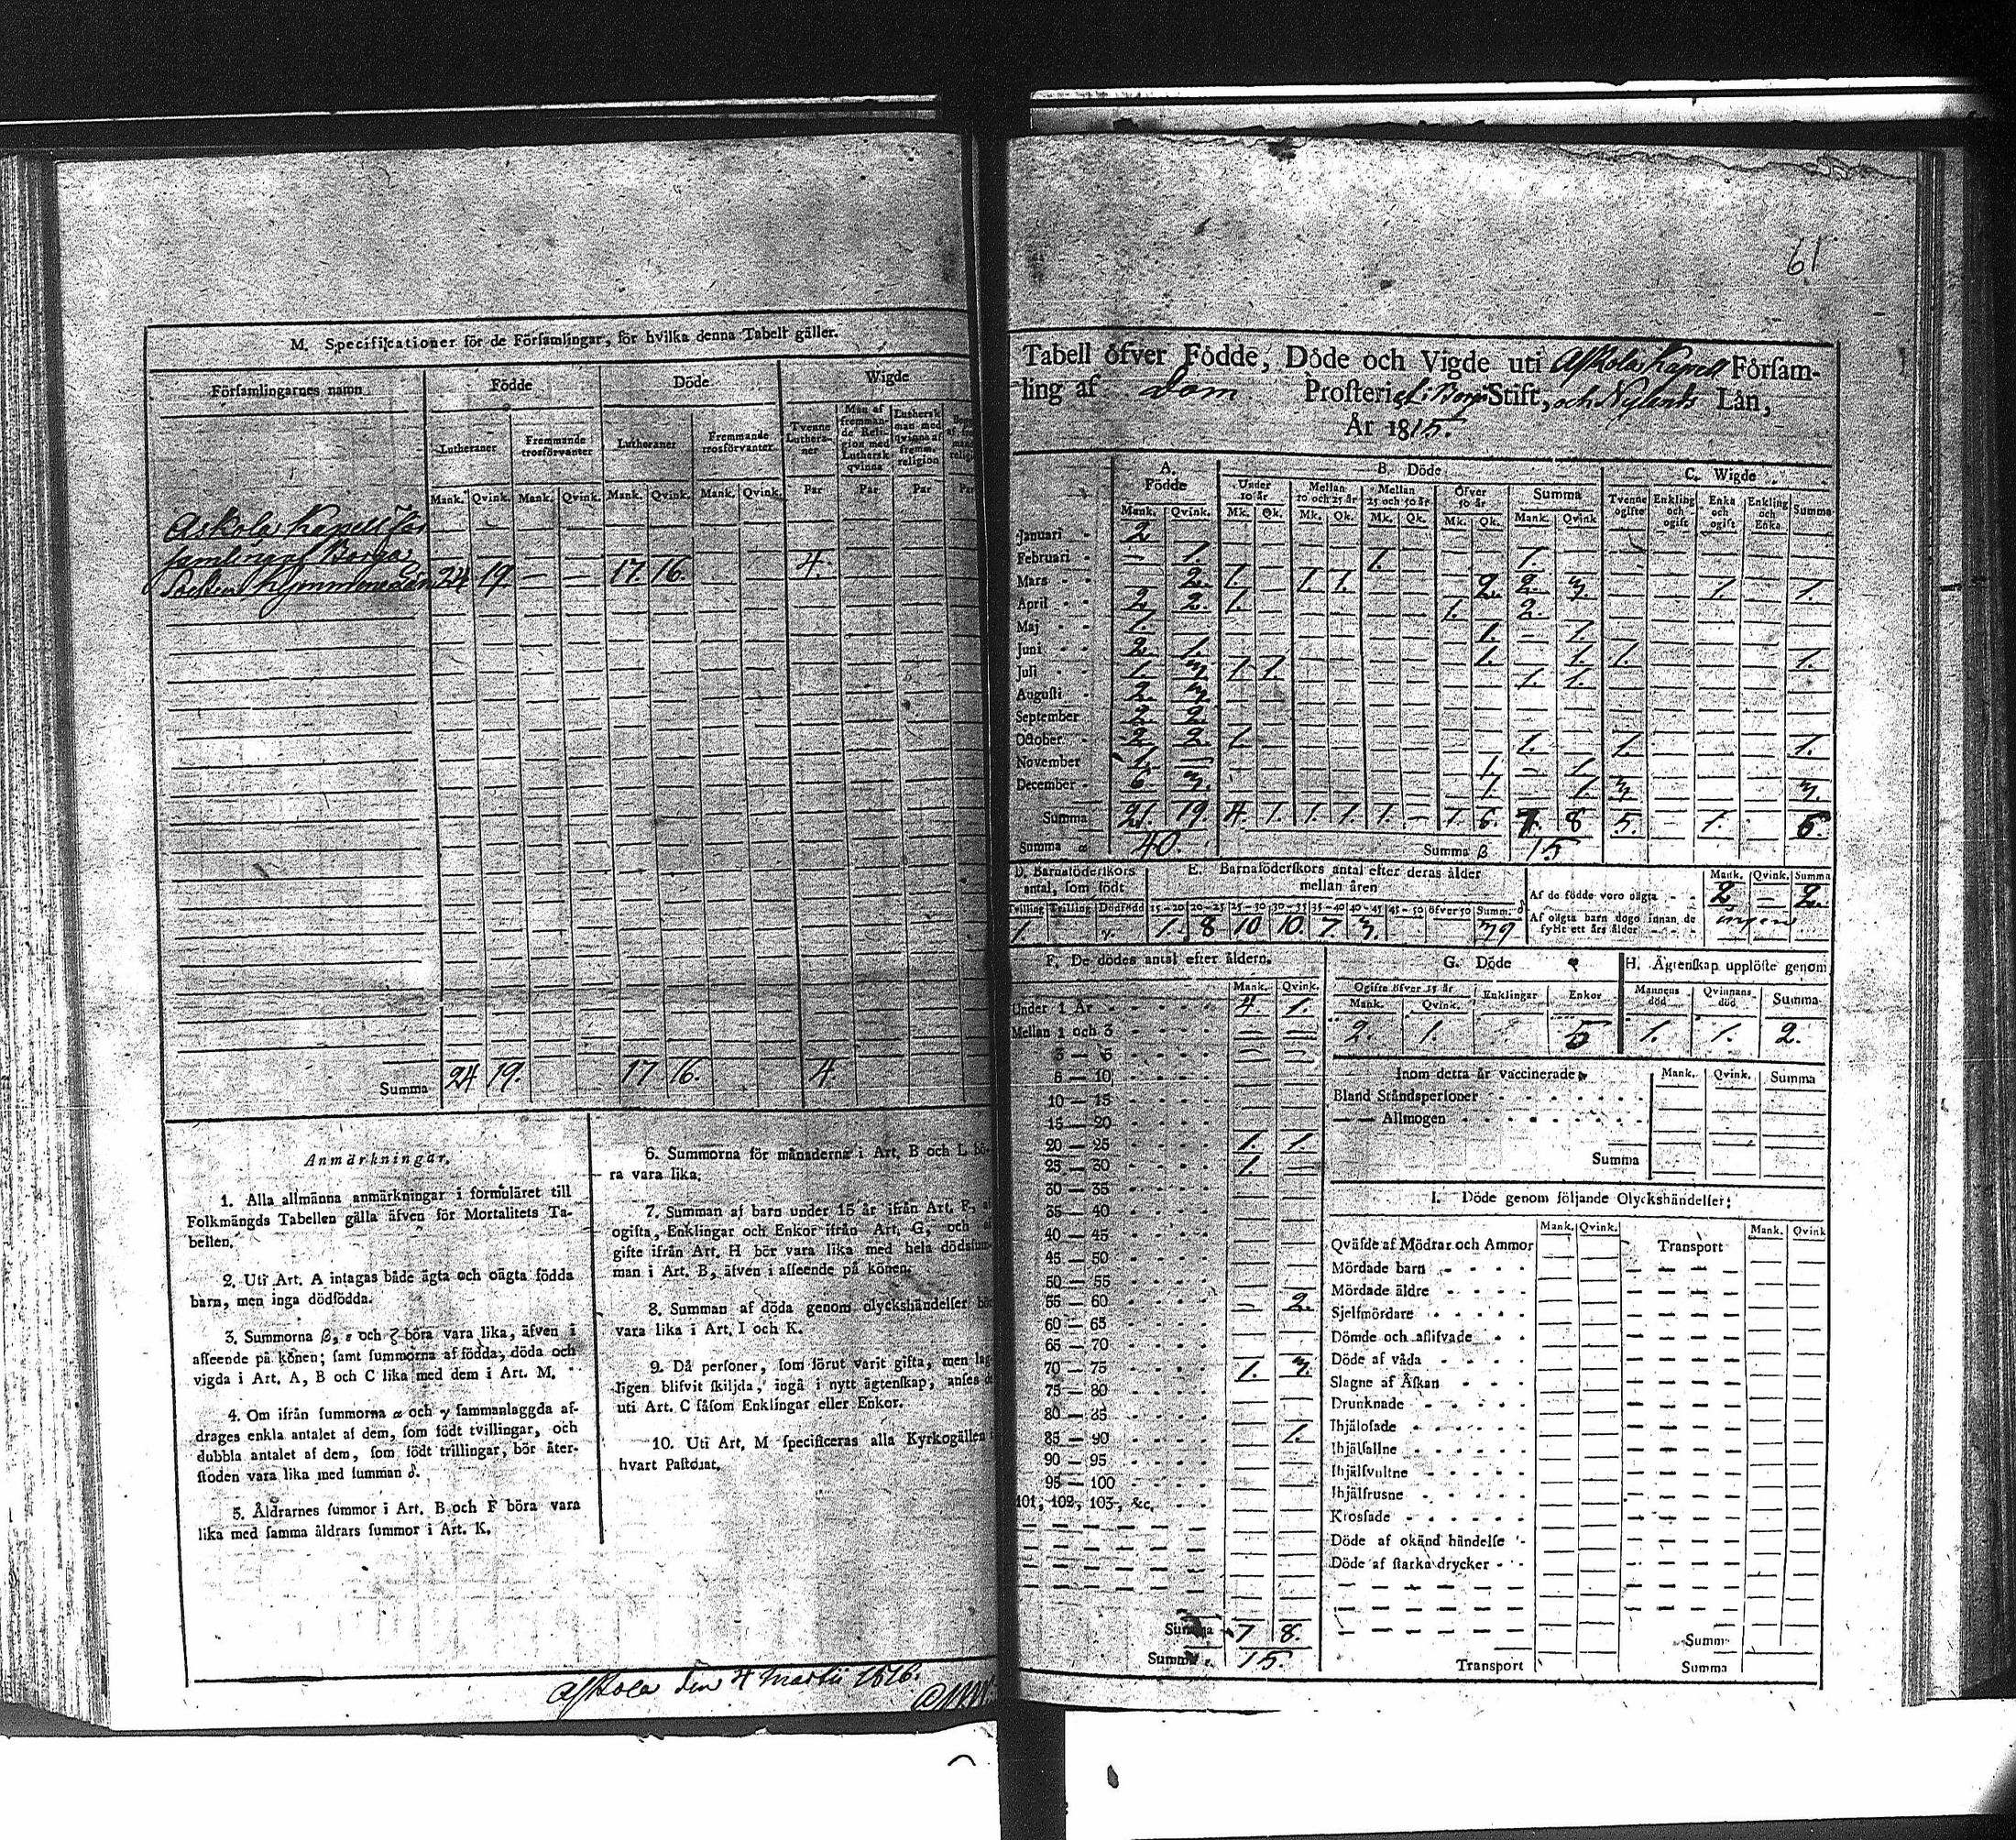 M. Specificationer för de Församlingar, för hvilka denna Tabell gäller.
Församlingarnes namn Födde Döde Wigde
Lutheraner Fremmande trosförvanter Lutheraner Fremmande trosförvanter Tvenne Lutheraner Man af fremmande Religion med Luthersk qvinna Luthersk man med qvinna af fremm. religion
Mank. Qvink. Mank. Qvink. Mank. Qvink. Mank. Qvink. Par Par Par Par
Askola Kapell för
samling af Borgå
Socken 24 19. — — 17. 16. 4.
Summa 24 19. 17 16. 4.
Anmärkningar.
1. Alla allmänna anmärkningar i formuläret till
Folkmängds Tabellen gälla äfven för Mortalitets Ta-
bellen.
2. Uti Art. A intagas både ägta och oägta födda
barn, men inga dödfödda.
3. Summorna β, ε och ζ böra vara lika, äfven i
afseende på könen; samt summorna af födda, döda och
vigda i Art. A, B och C lika med dem i Art. M.
4. Om ifrån summorna α och γ sammanlaggda af-
drages enkla antalet af dem, som födt tvillingar, och
dubbla antalet af dem, som födt trillingar, bör åter-
stoden vara lika med summan δ.
5. Åldrarnes summor i Art. B och F böra vara
lika med samma åldrars summor i Art. K.
6. Summorna för månaderna i Art. B och L bö-
ra vara lika.
7. Summan af barn under 15 år ifrån Art. F, af
ogifta, Enklingar och Enkor ifrån Art. G, och af
gifte ifrån Art. H bör vara lika med hela dödssum-
man i Art. B, äfven i afseende på könen.
8. Summan af döda genom olyckshändelser bör
vara lika i Art. I och K.
9. Då personer, som förut varit gifta, men lag-
ligen blifvit skiljda, ingå i nytt ägtenskap, anses de
uti Art. C såsom Enklingar eller Enkor.
10. Uti Art. M specificeras alla Kyrkogällen i
hvart Pastorat.
Askola den 4 Martii 1816.
61
Tabell öfver Födde, Döde och Vigde uti Askola Kapell Försam-
ling af Dom Prosteri af Borgå Stift, och Nylands Län,
År 1815.
A. Födde B. Döde C. Wigde
Under 10 år Mellan 10 och 25 år Mellan 25 och 50 år Öfver 50 år Summa Tvenne ogifte Enkling och ogift Enka och ogift Enkling och Enka Summa
Mank. Qvink. Mk. Qk. Mk. Qk. Mk. Qk. Mk. Qk. Mank. Qvink
Januari 2
Februari — 1. 1. 1.
Mars 2. 1. 1. 1. 2. 2. 3. 1. 1.
April 2. 2. 1. 1. 2.
Maj 1. 1. — 1.
Juni 2. 1. 1. 1. 1. 1.
Juli 1. 3 1. 1. 1. 1.
Augusti 2. 3
September 2. 2
October 2. 2. 1. 1. 1. 1.
November 1. — 1. — 1.
December 6 3. 1. 1 3 3.
Summa 21. 19. 4. 1. 1. 1. 1. — 1. 6. 7. 8 5. — 1. 6.
Summa α 40. Summa β 15
D. Barnaföderskors antal, som födt
Tvilling Trilling Dödfödd
1.
E. Barnaföderskors antal efter deras ålder mellan åren
15—20 20—25 25—30 30—35 35—40 40—45 45—50 öfver 50 Summ. δ
1. 8 10 10. 7 3. 39
Mank. Qvink. Summa
Af de födde voro oägta 2 — 2.
Af oägta barn dogo innan de fyllt ett års ålder ingen
F. De dödes antal efter åldern.
Mank. Qvink.
Under 1 År 4 1.
Mellan 1 och 3
3 — 5
5 — 10
10 — 15
15 — 20
20 — 25 1. 1.
25 — 30 1.
30 — 35
35 — 40
40 — 45
45 — 50
50 — 55
55 — 60 2.
60 — 65
65 — 70
70 — 75 1. 3.
75 — 80
80 — 85
85 — 90 1.
90 — 95
95 — 100
101, 102, 103, &c.
Summa 7 8.
Summa ε. 15.
G. Döde
Ogifte öfver 15 år Enklingar Enkor
Mank. Qvink.
2. 1. 5
H. Ägtenskap upplöste genom
Mannens död Qvinnans död Summa
1. 1. 2.
Inom detta år vaccinerade Mank. Qvink. Summa
Bland Ståndspersoner
— — Allmogen
Summa
I. Döde genom följande Olyckshändelser:
Mank. Qvink. Mank. Qvink
Qväfde af Mödrar och Ammor Transport
Mördade barn
Mördade äldre
Sjelfmördare
Dömde och aflifvade
Döde af våda
Slagne af Åskan
Drunknade
Ihjälosade
Ihjälfallne
Ihjälsvultne
Ihjälfrusne
Krossade
Döde af okänd händelse
Döde af starka drycker
Summ
Transport Summa